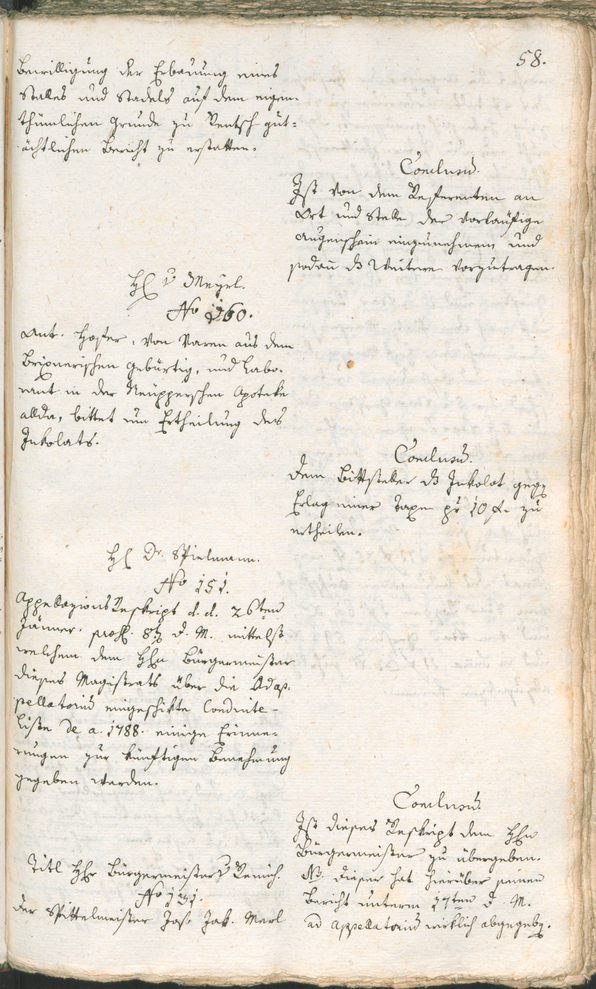 58.
Bewilligung der Erbauung eines
Stalles und Stadels auf dem eigen-
thümlichen Grunde zu Rentsch gut-
ächtlichen Bericht zu erstatten.
Conclusū.
Ist von dem Referenten an
Ort und Stelle der vorläufige
Augenschein einzunehmen und
sodan dz Weitere vorzutragen.
No 160.
Ant. Hofer, von Varen aus dem
Brixnerischen gebürtig, und Labo-
rant in der Apoteke
allda, bittet um Ertheilung des
Inkolats.
Conclusū.
Dem Bittsteller dz Inkolat gegen
Erlag einer Taxe pr 10 f. zu
ertheilen.
H. Dr. Spielmann.
No 151.
Appellazions Reskript d. d. 26ten
Jänner, d. M. mittelst
welchem dem Hhn Bürgermeister
dieses Magistrats über die Ad ap-
pellatoriū eingeschikte Conduite-
liste de a. 1788. einige Erinne-
rungen zur künftigen Benehmung
gegeben werden.
Conclusū.
Ist dieses Reskript dem Hhn
Bürgermeister zu übergeben.
NB. dieser hat hierüber seinen
Bericht unterm 17ten d. M.
ad Appellatoriū wirklich abgegeben.
Titl Hhr Bürgermeister
No 191.
Der Spittelmeister Jos. Jak. Merl